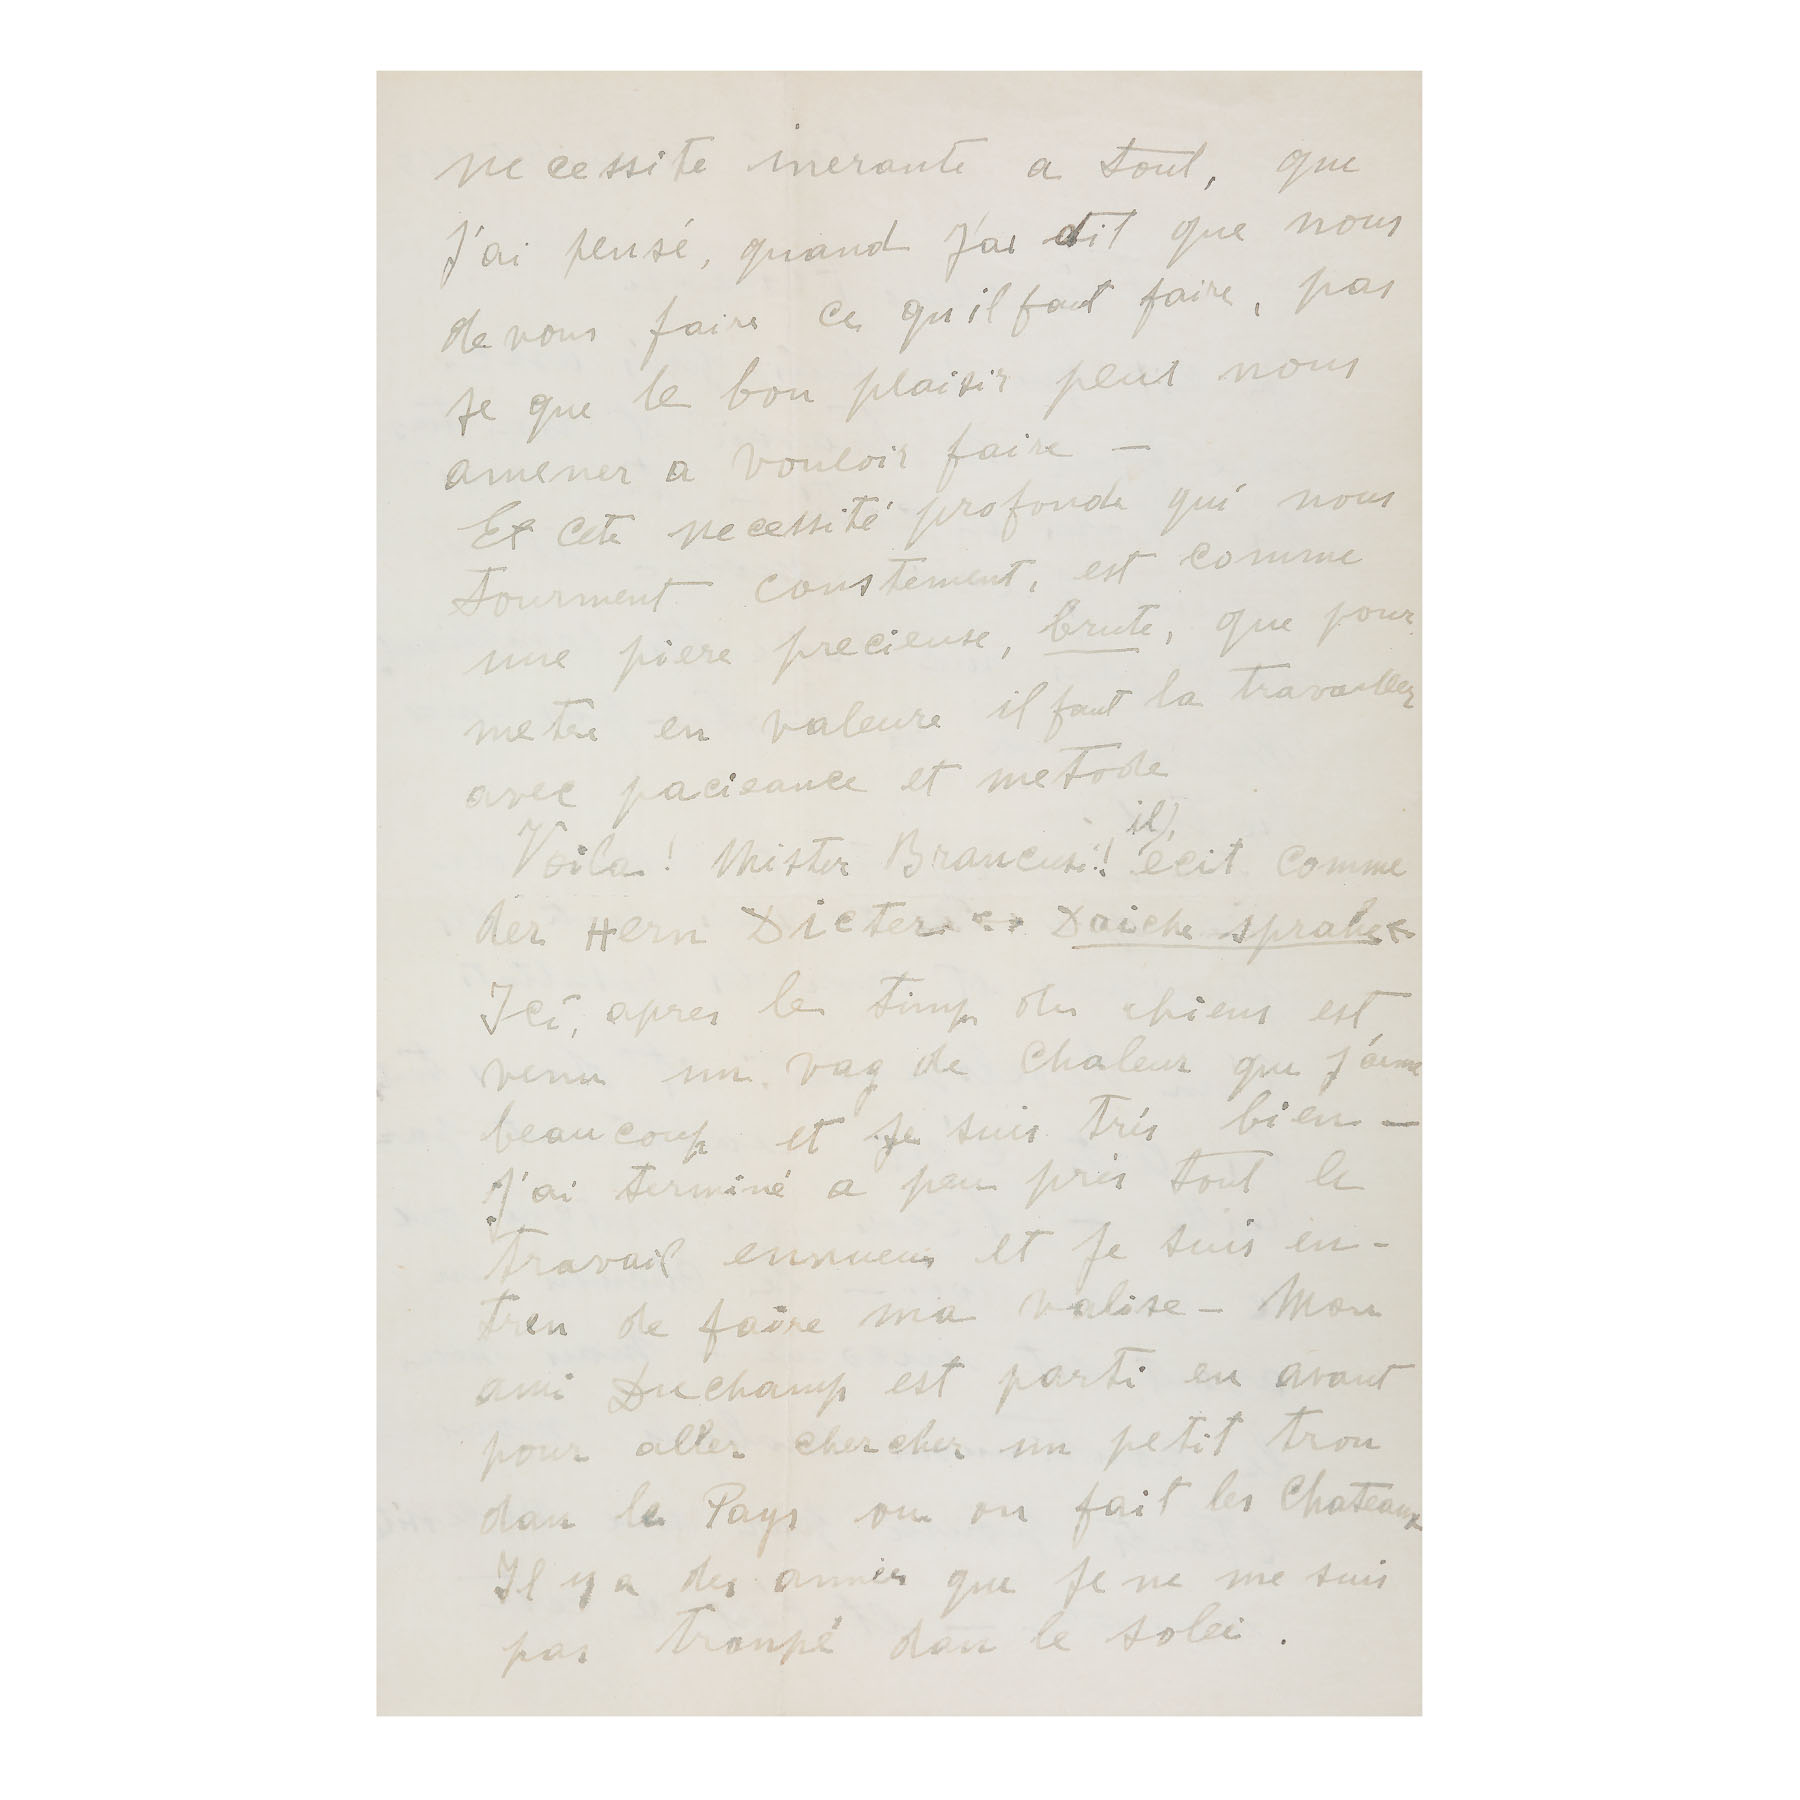 necessite inerante a tout, que
J'ai pensé, quand J'ai dit que nous
devons faire ce qu'il faut faire, pas
se que le bon plaisir peut nous
amener a vouloir faire —
Et cete necessité profonde qui nous
tourment constement, est comme
une piere precieuse, brute, que pour
metre en valeure il faut la travailler
avec pacieance et metode
Voila! Mister Brancusi!! il ecit comme
der Hern Dicter Daiche sprahe
Ici, apres le timp du chiens est
venu un vag de Chaleur que J'aime
beaucoup et Je suis très bien —
J'ai terminé a peu près tout le
travail ennueus et Je suis en-
tren de faire ma valise — Mon
ami Duchamp est parti en avant
pour aller chercher un petit trou
dan le Pays ou on fait les Chateaux
Il y a des anneés que Je ne me suis
pas trompé dan le solei.